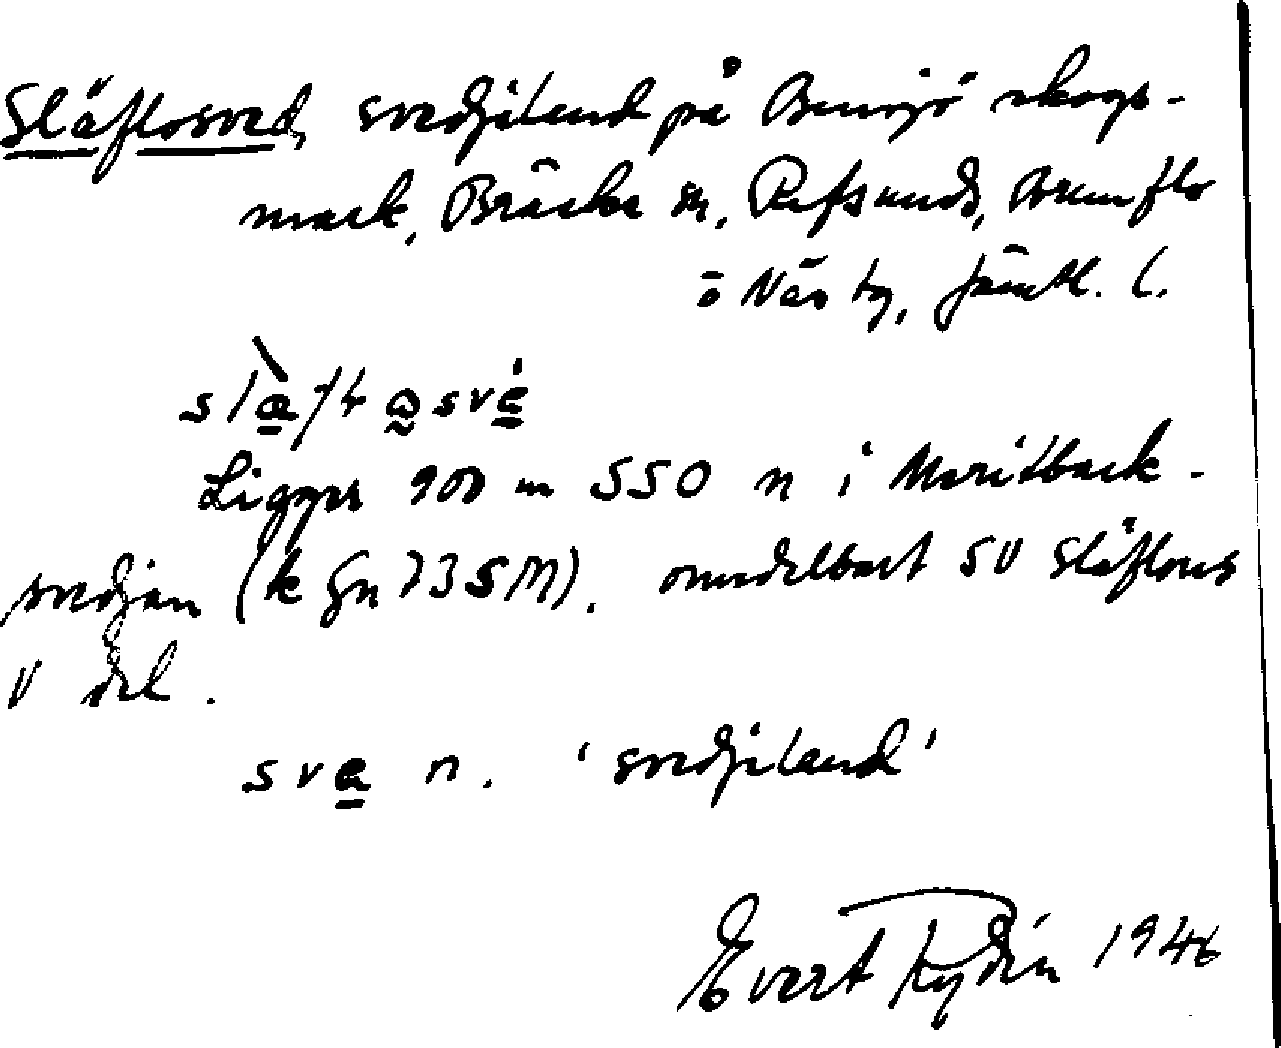 Släflosved, svedjeland på Bensjö skogs-
mark, Bräcke sn, Refsunds, Brunflo
o Näs tg, Jämtl. l.
Ligger 900 m SSO n i Maritback-
svedjan (k fn 735M). omedelbart SV Släflons
V del.
sve n. 'svedjeland'
Evert Rydén 1946